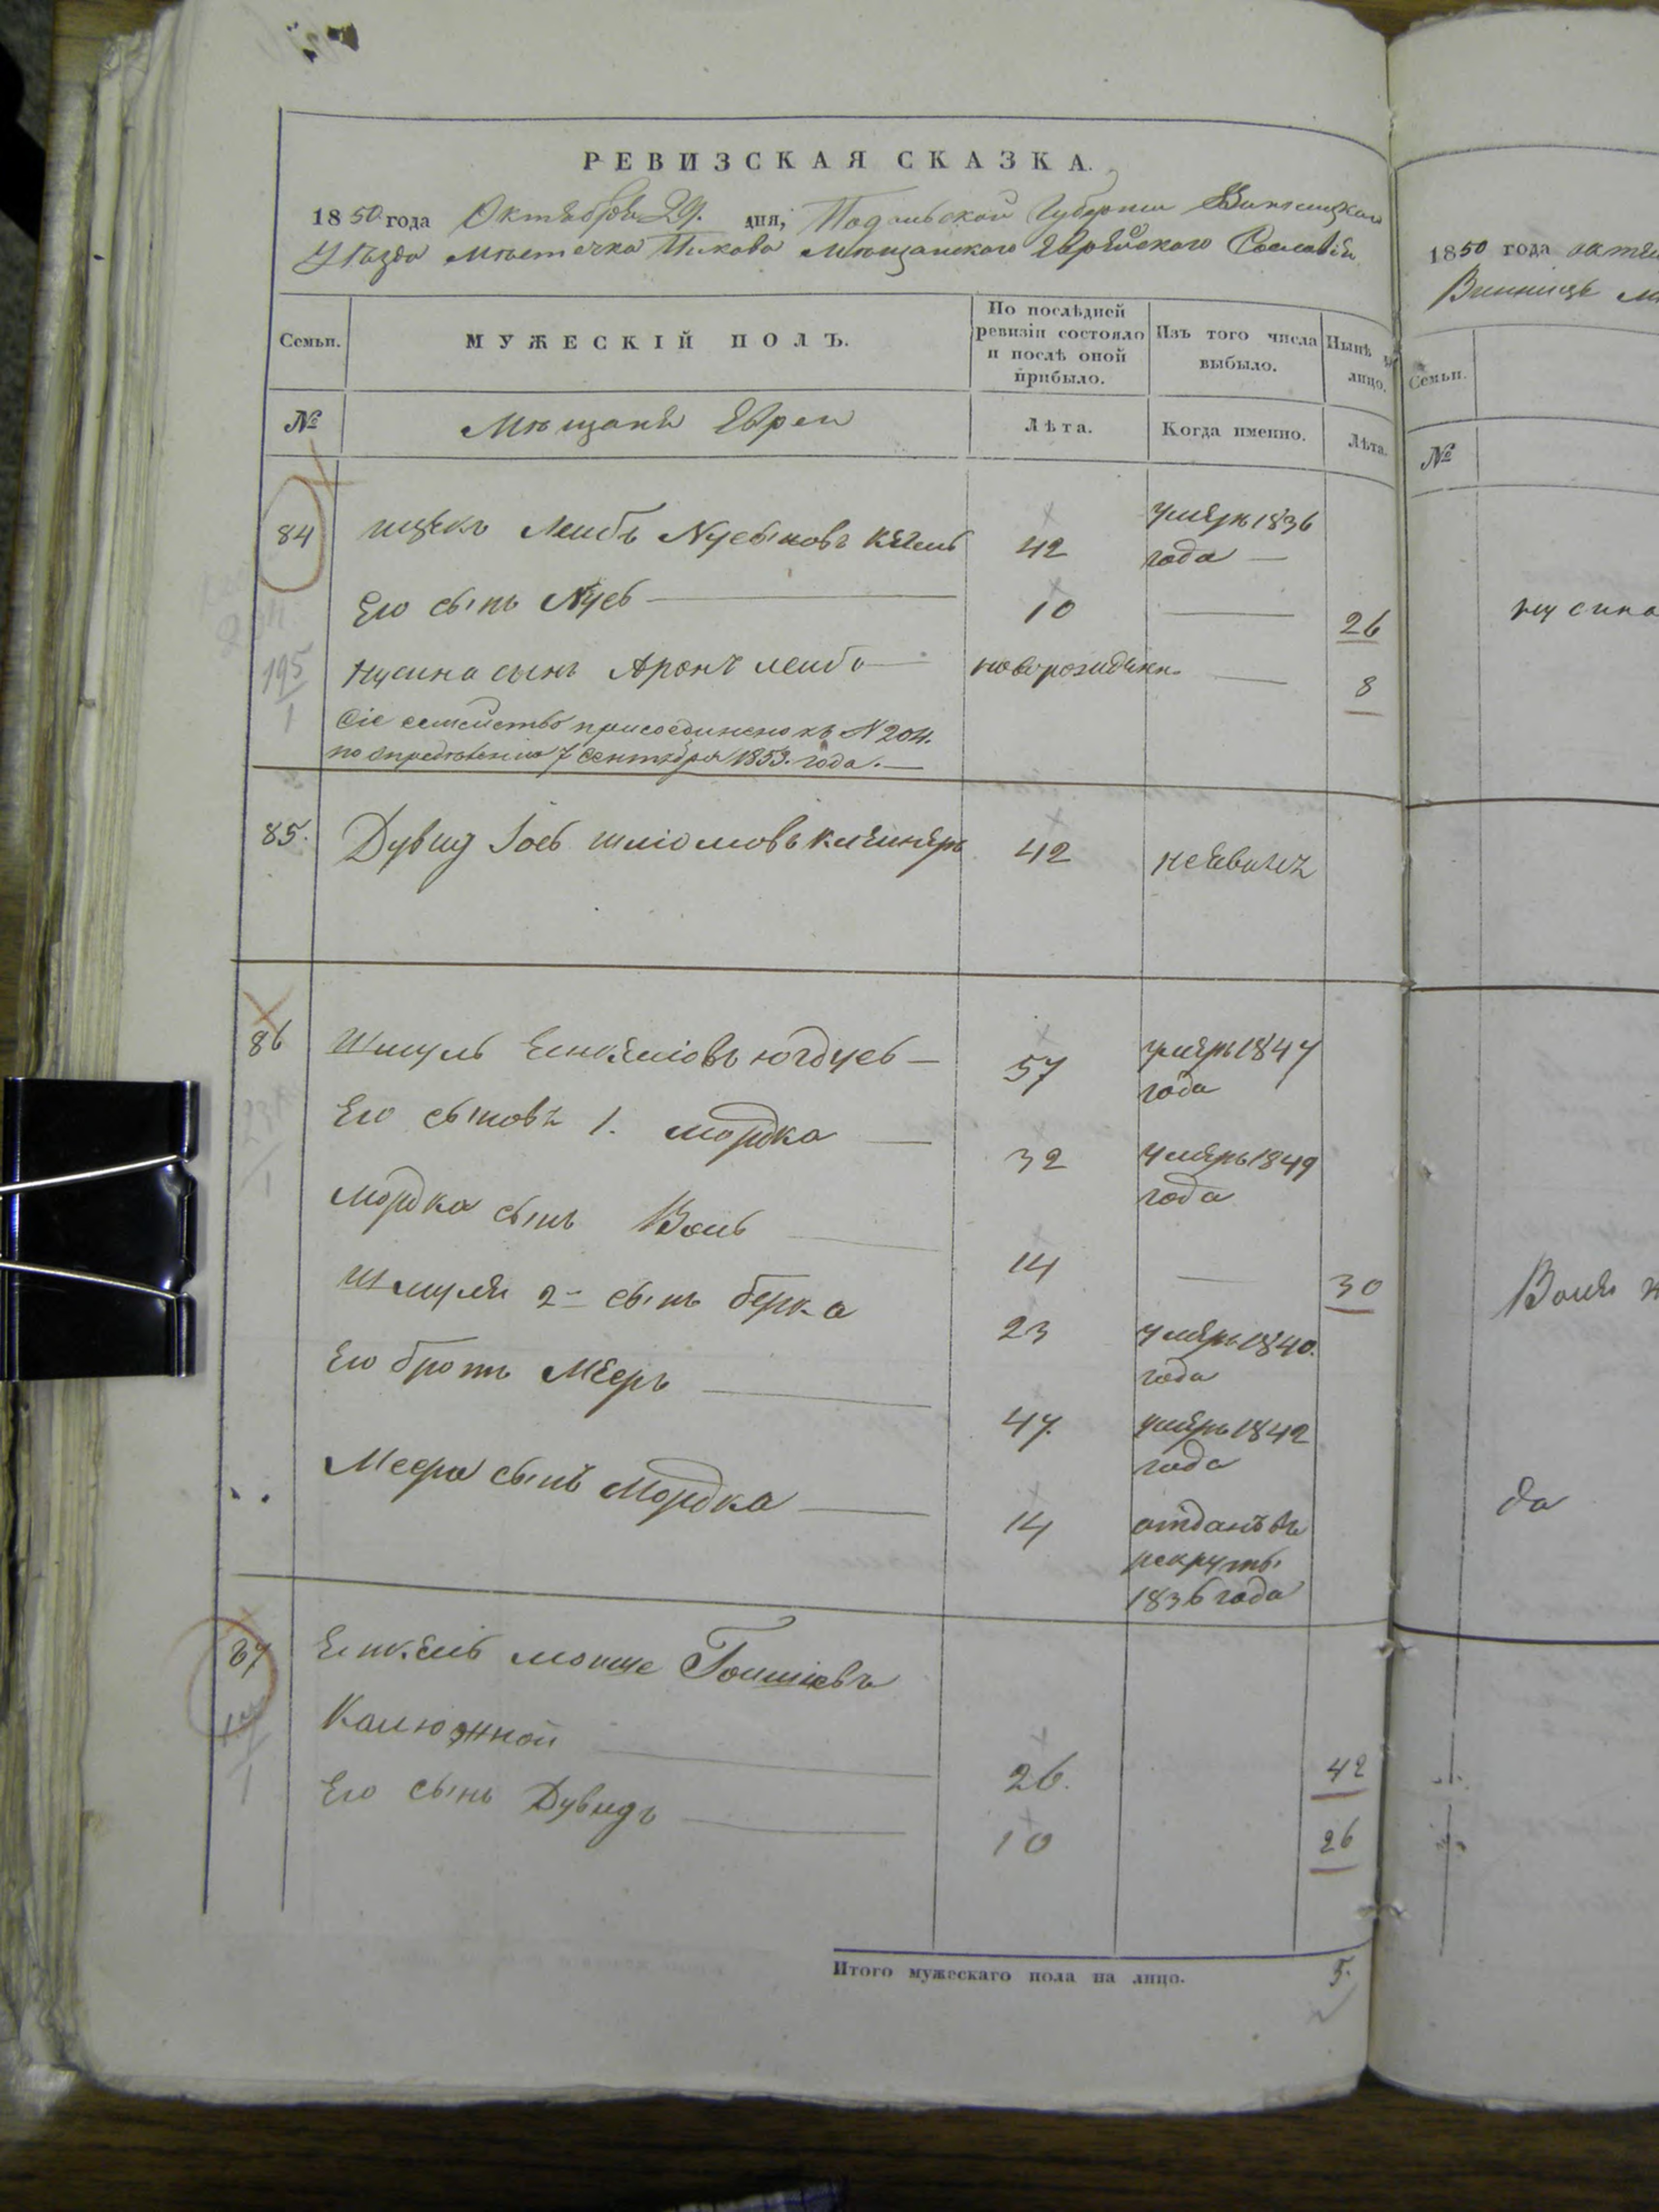 РЕВИЗСКАЯ СКАЗКА.
1850 года Октября 29. дня, Подольской Губернии Винницкаго
Уѣзда мѣстечка Пикова мѣщанского Еврейского Сословія
Семьи.
МУЖЕСКІЙ ПОЛЪ.
По послѣдней ревизіи состояло и послѣ оной прибыло.
Изъ того числа выбыло.
Нынѣ на лицо.
№
Мѣщане Евреи
Лѣта.
Когда именно.
Лѣта.
84 Ицъкъ Леибъ Нусыновъ 42 умеръ 1836
года —
Его сынъ Нусъ — 10 — 26
195
1
Нусина сынъ Аронъ леибъ — новорожденн. — 8
Сіе семейство присоединено къ N 204.
по опредѣленію 7 Сентября 1853. года. —
85. Дувид Іосъ Шліомовъ 42 неявился
86 Шмуль Еинкеліовъ — 57 умеръ 1847
года
Его сыновъ 1. Мордка — 32 умеръ 1849
года
Мордка сынъ Волъ — 14 — 30
Шмуля 2й сынъ берка 23 умеръ 1840.
года
Его братъ Мееръ — 47. умеръ 1842
года
Меера сынъ Мордка — 14 отданъ въ
рекруты
1836 года
87 Еинкель мошие
Калюжной — 26. 42
1
Его сынъ Дувидъ — 10 26
Итого мужескаго пола на лицо. 5.
1850 года
Винницъ
Семьи.
№
нусина
Воля
да